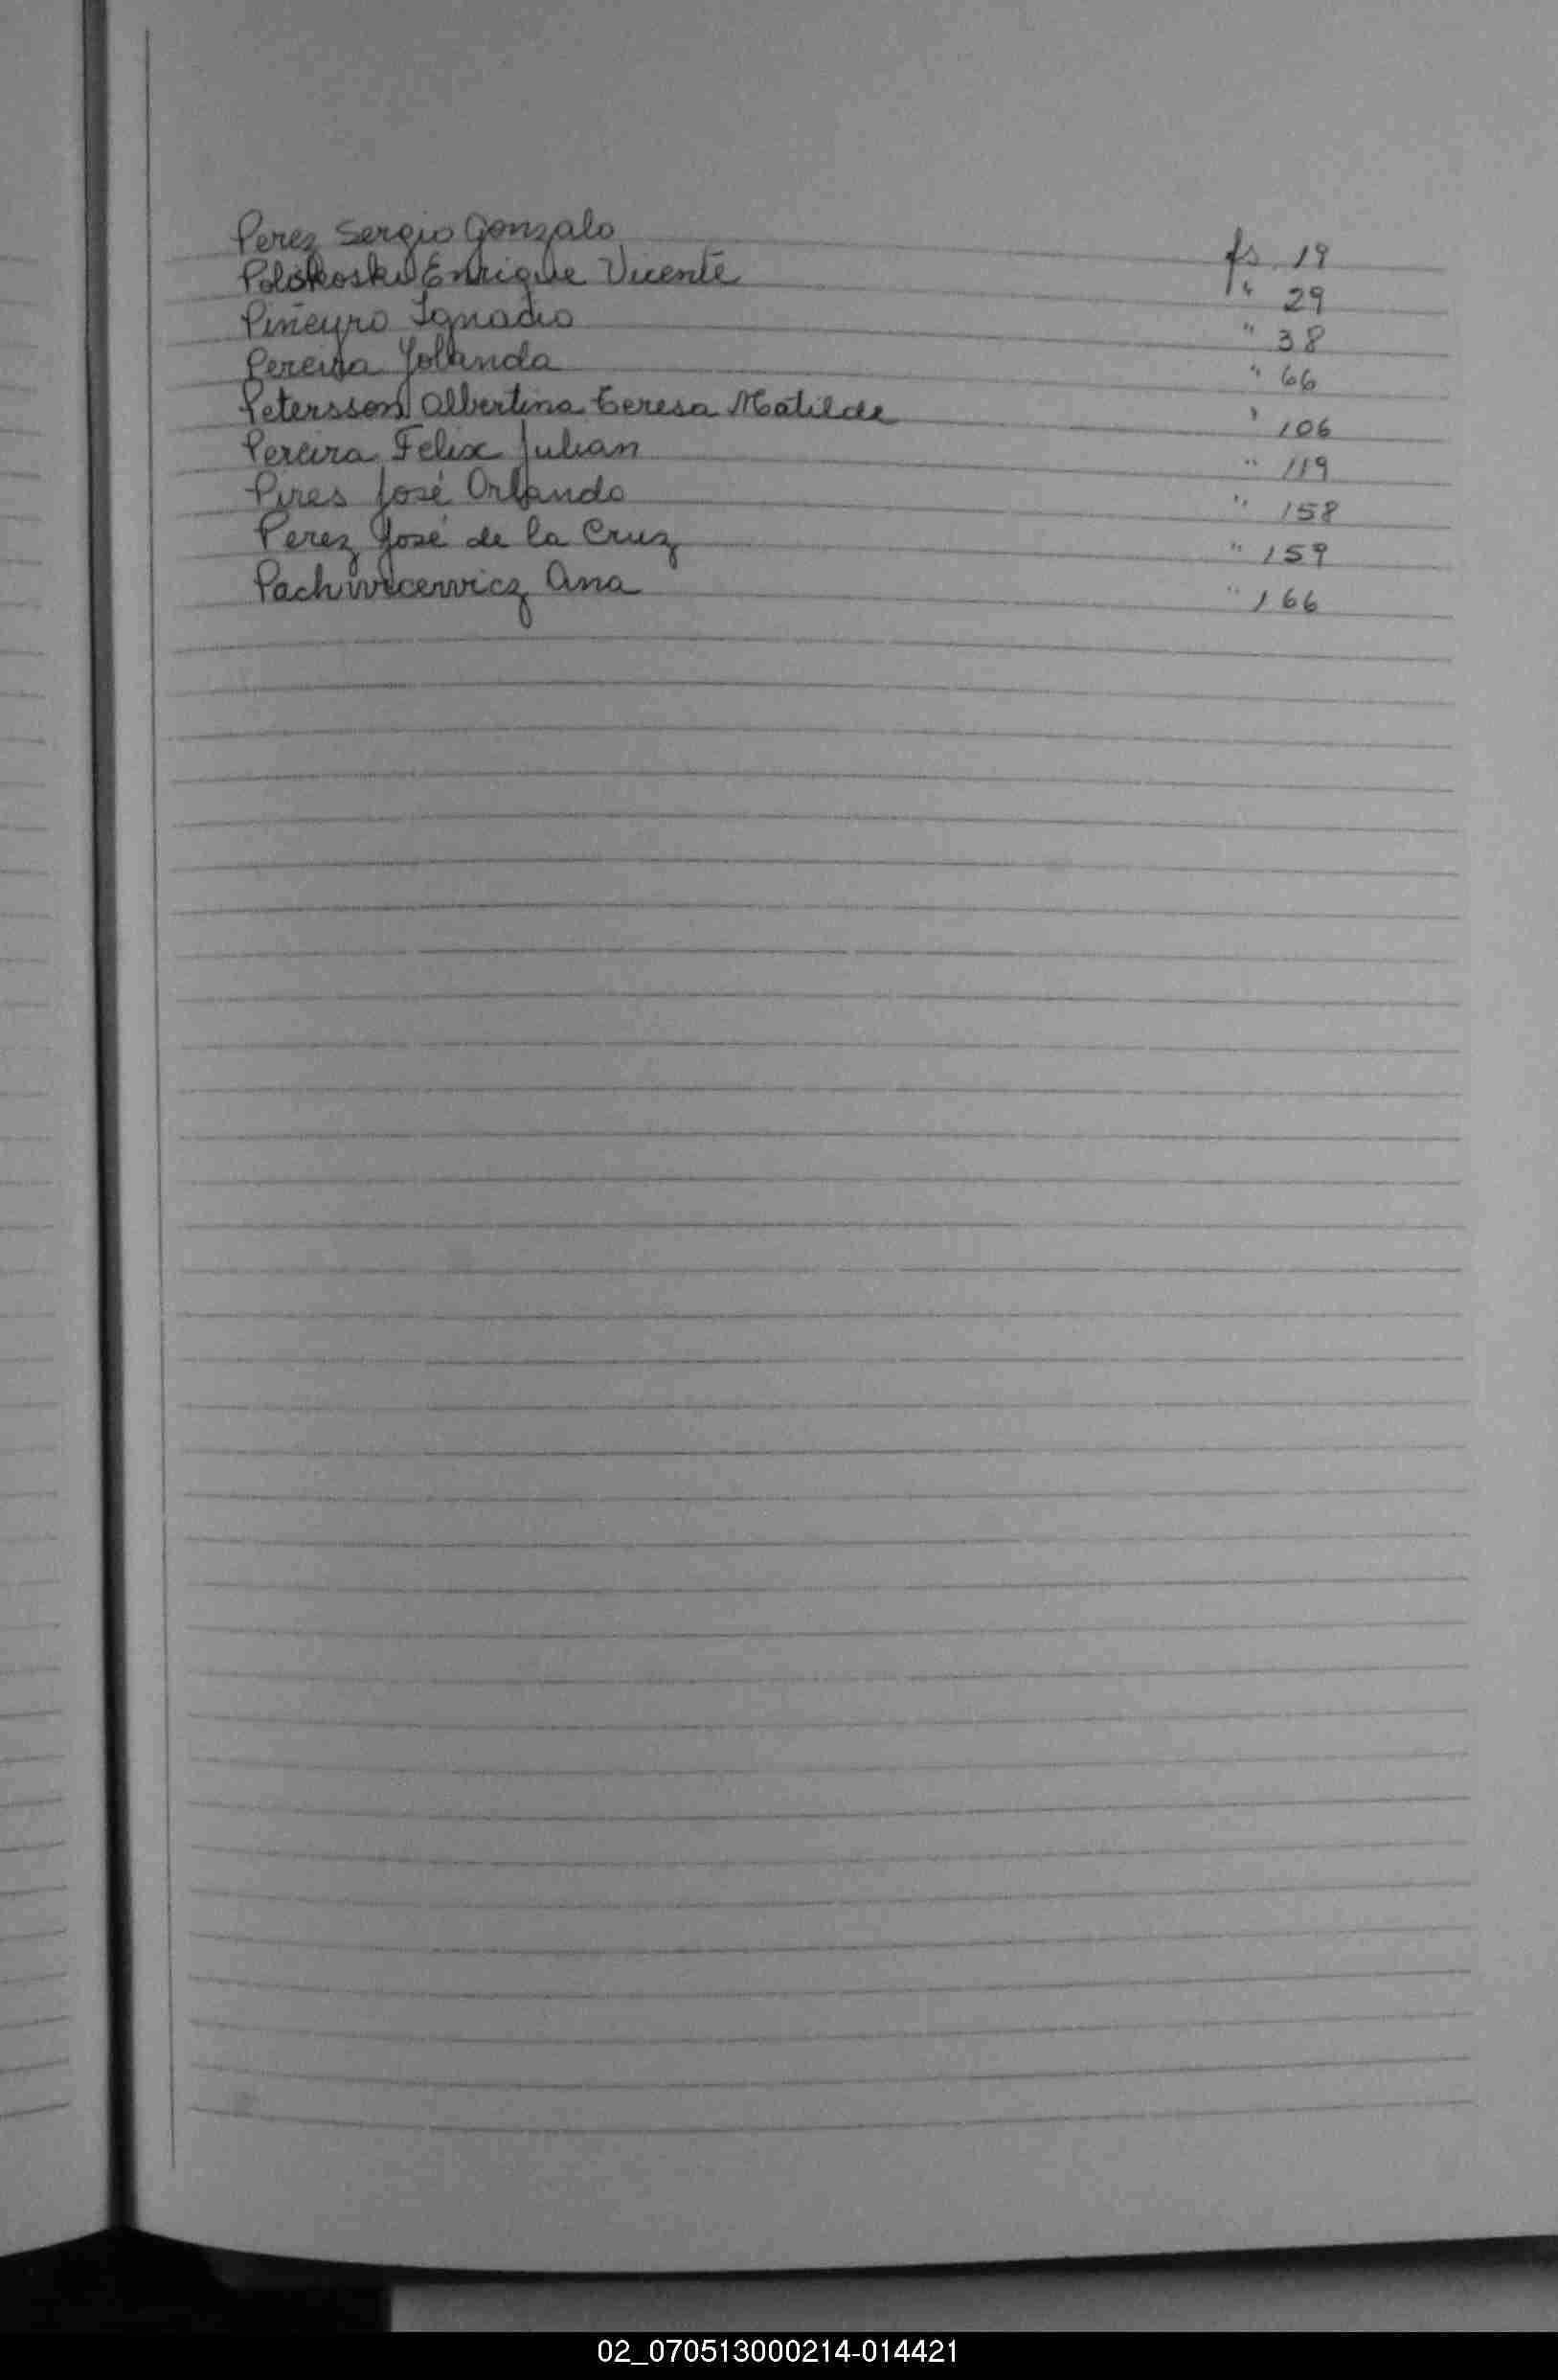 Perez Sergio Gonzalo fs. 19
Enrique Vicente " 29
Piñeyro Ignacio " 38
Pereira Yolanda " 66
Petersson Albertina Teresa Matilde " 106
Pereira Felix Julian " 119
Pires José Orlando " 158
Perez José de la Cruz " 159
Ana " 166
02_070513000214-014421